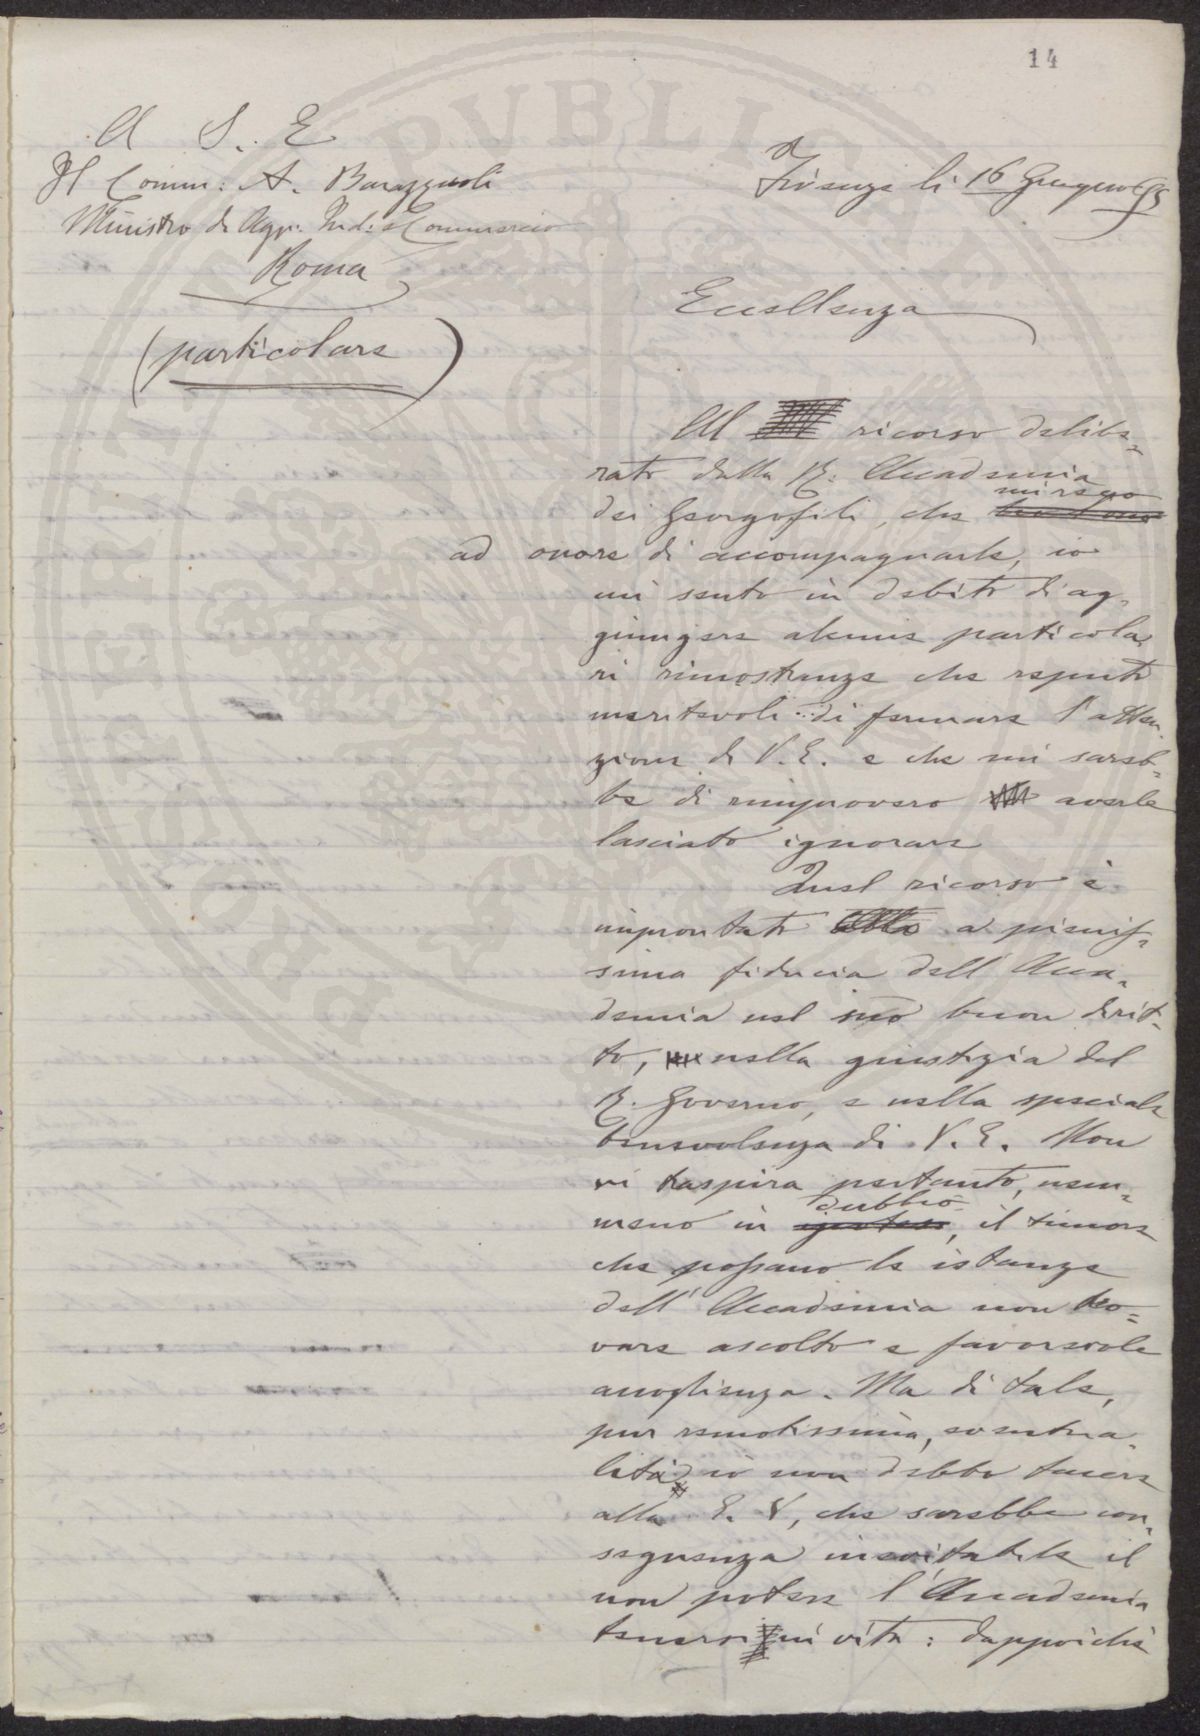 14
A S. E
Il Comm: A. Barazzuoli
Ministro di Agr: Ind: e Commercio
Roma
(particolare)
Firenze li 16 Giugno 95
Eccellenza
Al ricorso delibe-
rato dalla R. Accademia
mi reco
dei Georgofili, che
ad onore di accompagnarle, io
mi sento in debito di ag-
giungere alcune particola
ri rimostranze che reputo
meritevoli di fermare l'atten-
zione di V. E. e che mi sareb-
be di rimprovero averle
lasciato ignorare
Quel ricorso è
improntato a pienis-
sima fiducia dell'Acca-
demia nel suo buon dirit-
to, nella giustizia del
R. Governo, e nella speciale
benevolenza di V. E. Non
vi traspira pertanto, nem-
dubbio
meno in ipotesi, il timore
che possano le istanze
dell'Accademia non tro-
vare ascolto e favorevole
accoglienza. Ma di tale,
pur remotissima, eventua-
lità io non debbo tacere
alla E. V, che sarebbe con-
seguenza inevitabile il
non potere l'Accademia
tenersi in vita: dappoichè
PVBLICAE